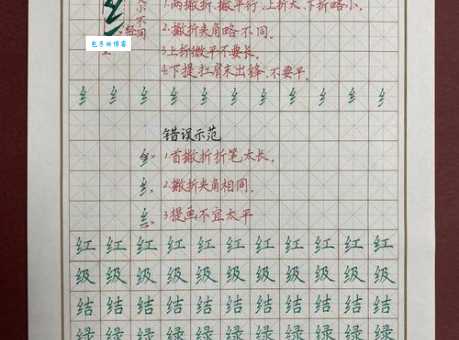 1.两撇折、撇平行,上折大、下折略小。
2.撇折夹角略不同。
3.上折撇平不要长。
4.下提,扛肩末出锋,不要平。
纟纟纟纟纟纟纟纟纟纟纟
错误示范
1.首撇折折笔太长。
2.撇折夹角相同。
3.提画不宜太平
红红红红红红红红红红红
级级级级级级级级级级级
结结结结结结结结结结结
绿绿绿绿绿绿绿绿绿绿绿